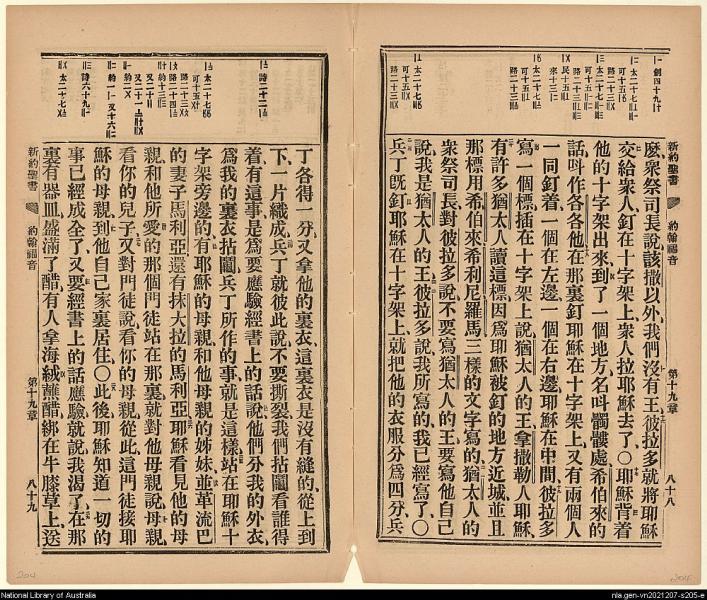 新約聖書 約翰福音 第十九章 八十八
麽衆祭司長說該撒以外我們沒有王彼拉多就將耶穌
交給衆人釘在十字架上衆人拉耶穌去了〇耶穌背着
他的十字架出來到了一個地方名呌髑髏處希伯來的
話呌作各各他在那裏釘耶穌在十字架上又有兩個人
一同釘着一個在左邊一個在右邊耶穌在中間彼拉多
寫一個標插在十字架上說猶太人的王拿撒勒人耶穌
有許多猶太人讀這標因爲耶穌被釘的地方近城並且
那標用希伯來希利尼羅馬三樣的文字寫的猶太人的
衆祭司長對彼拉多說不要寫猶太人的王要寫他自己
說我是猶太人的王彼拉多說我所寫的我已經寫了〇
兵丁旣釘耶穌在十字架上就把他的衣服分爲四分兵
丁各得一分又拿他的裏衣這裏衣是沒有縫的從上到
下一片織成兵丁就彼此說不要撕裂我們拈鬮看誰得
着有這事是爲要應驗經書上的話說他們分我的外衣
爲我的裏衣拈鬮兵丁所作的事就是這樣站在耶穌十
字架旁邊的有耶穌的母親和他母親的姊妹並革流巴
的妻子馬利亞還有抹大拉的馬利亞耶穌看見他的母
親和他所愛的那個門徒站在那裏就對他母親說母親
看你的兒子又對門徒說看你的母親從此這門徒接耶
穌的母親到他自己家裏居住〇此後耶穌知道一切的
事已經成全了又要經書上的話應驗就說我渴了在那
裏有器皿盛滿了醋有人拿海絨蘸醋綁在牛膝草上送
新約聖書 約翰福音 第十九章 八十九
204
204
National Library of Australia
nla.gen-vn2021207-s205-e